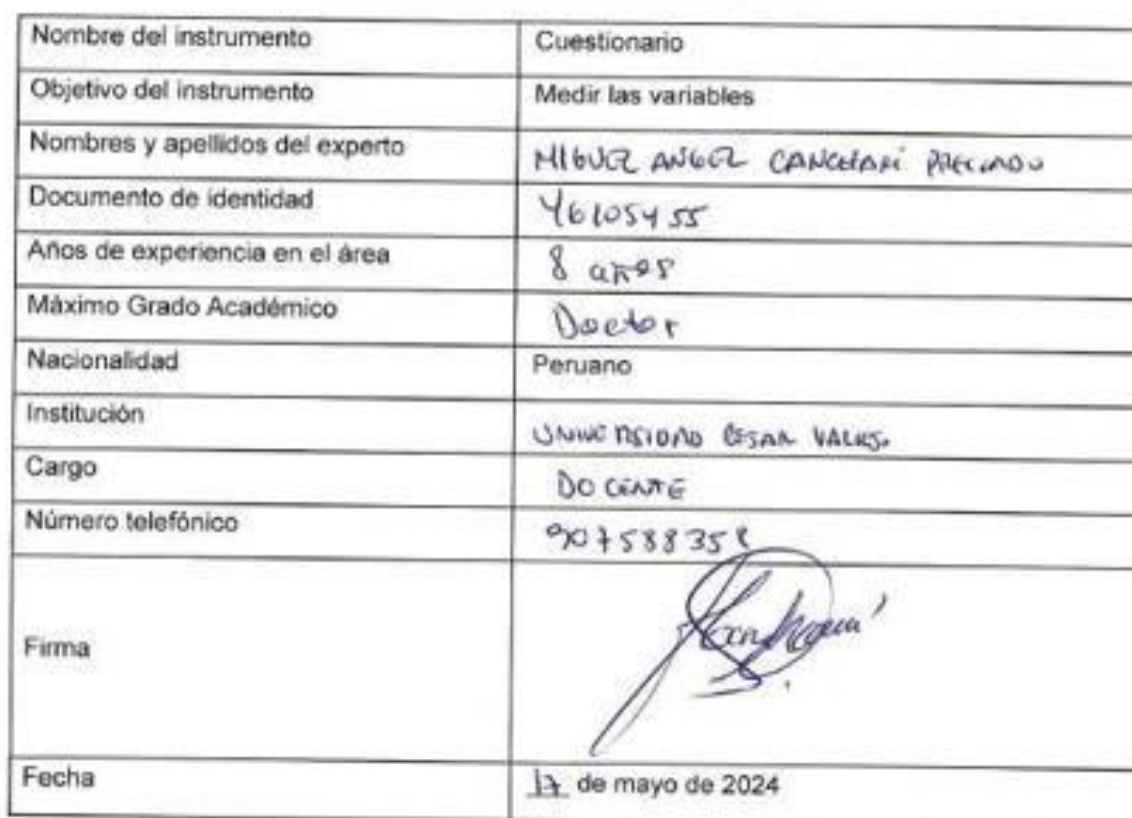 Nombre del instrumento Cuestionario
Objetivo del instrumento Medir las variables
Nombres y apellidos del experto MIGUEL ANGEL CANCHARI PRECIADO
Documento de identidad 46105455
Años de experiencia en el área 8 años
Máximo Grado Académico Doctor
Nacionalidad Peruano
Institución UNIVERSIDAD CESAR VALLEJO
Cargo DOCENTE
Número telefónico 907588358
Firma
Fecha 17 de mayo de 2024